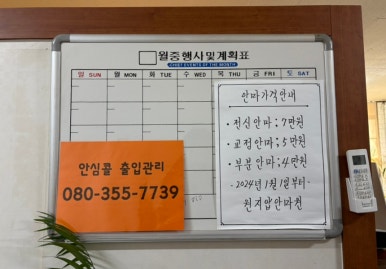 월중행사및계획표
CHIEF EVENTS OF THE MONTH
일 SUN 월 MON 화 TUE 수 WED 목 THU 금 FRI 토 SAT
안심콜 출입관리
080-355-7739
안마가격안내
• 전신안마; 7만원
• 교정안마; 5만원
• 부분안마; 4만원
- 2024년 1월 1일부터 -
원지압안마원